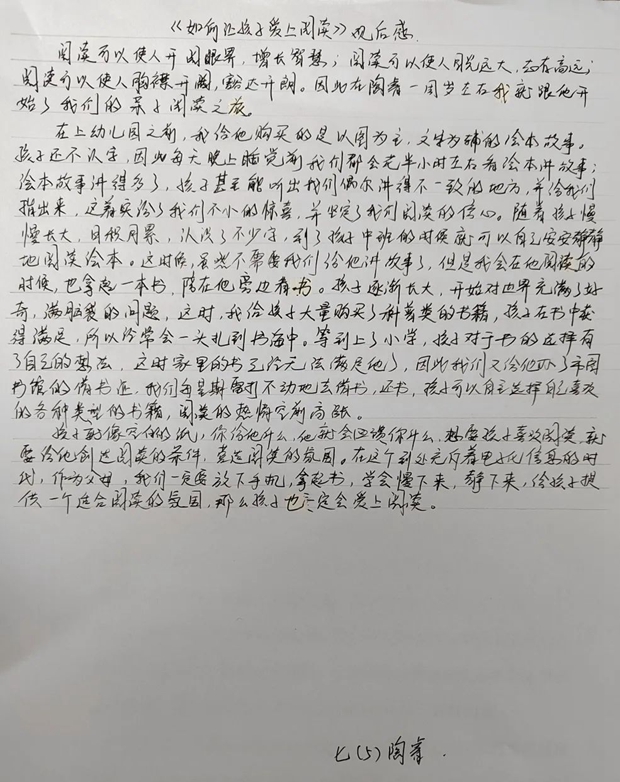 《如何让孩子爱上阅读》观后感
阅读可以使人开阔眼界，增长智慧；阅读可以使人目光远大，志存高远；
阅读可以使人胸襟开阔，豁达开朗。因此在陶睿一周岁左右我就跟他开
始了我们的亲子阅读之旅。
在上幼儿园之前，我给他购买的是以图为主，文字为辅的绘本故事。
孩子还不认字，因此每天晚上睡觉前我们都会花半小时左右看绘本讲故事；
绘本故事讲得多了，孩子甚至能听出我们偶尔讲得不一致的地方，并给我们
指出来，这着实给了我们不小的惊喜，并坚定了我们阅读的信心。随着孩子慢
慢长大，日积月累，认识了不少字，到了孩子中班的时候就可以自己安安静静
地阅读绘本。这时候，虽然不需要我们给他讲故事了，但是我会在他阅读的
时候，也拿起一本书，陪在他旁边看书。孩子逐渐长大，开始对世界充满了好
奇，满脑袋的问题，这时，我给孩子大量购买了科普类的书籍，孩子在书中获
得满足，所以经常会一头扎到书海中。等到上了小学，孩子对于书的选择有
了自己的想法，这时家里的书已经无法满足他了，因此我们又给他办了市图
书馆的借书证，我们每星期雷打不动地去借书，还书，孩子可以自主选择自己喜欢
的各种类型的书籍，阅读的热情空前高涨。
孩子都像空白的纸，你给他什么，他就会回馈你什么，想要孩子喜欢阅读，就
要给他创造阅读的条件，营造阅读的氛围。在这个到处充斥着电子化信息的时
代，作为父母，我们一定要放下手机，拿起书，学会慢下来，静下来，给孩子提
供一个适合阅读的氛围，那么孩子也一定会爱上阅读。
七(5)陶睿